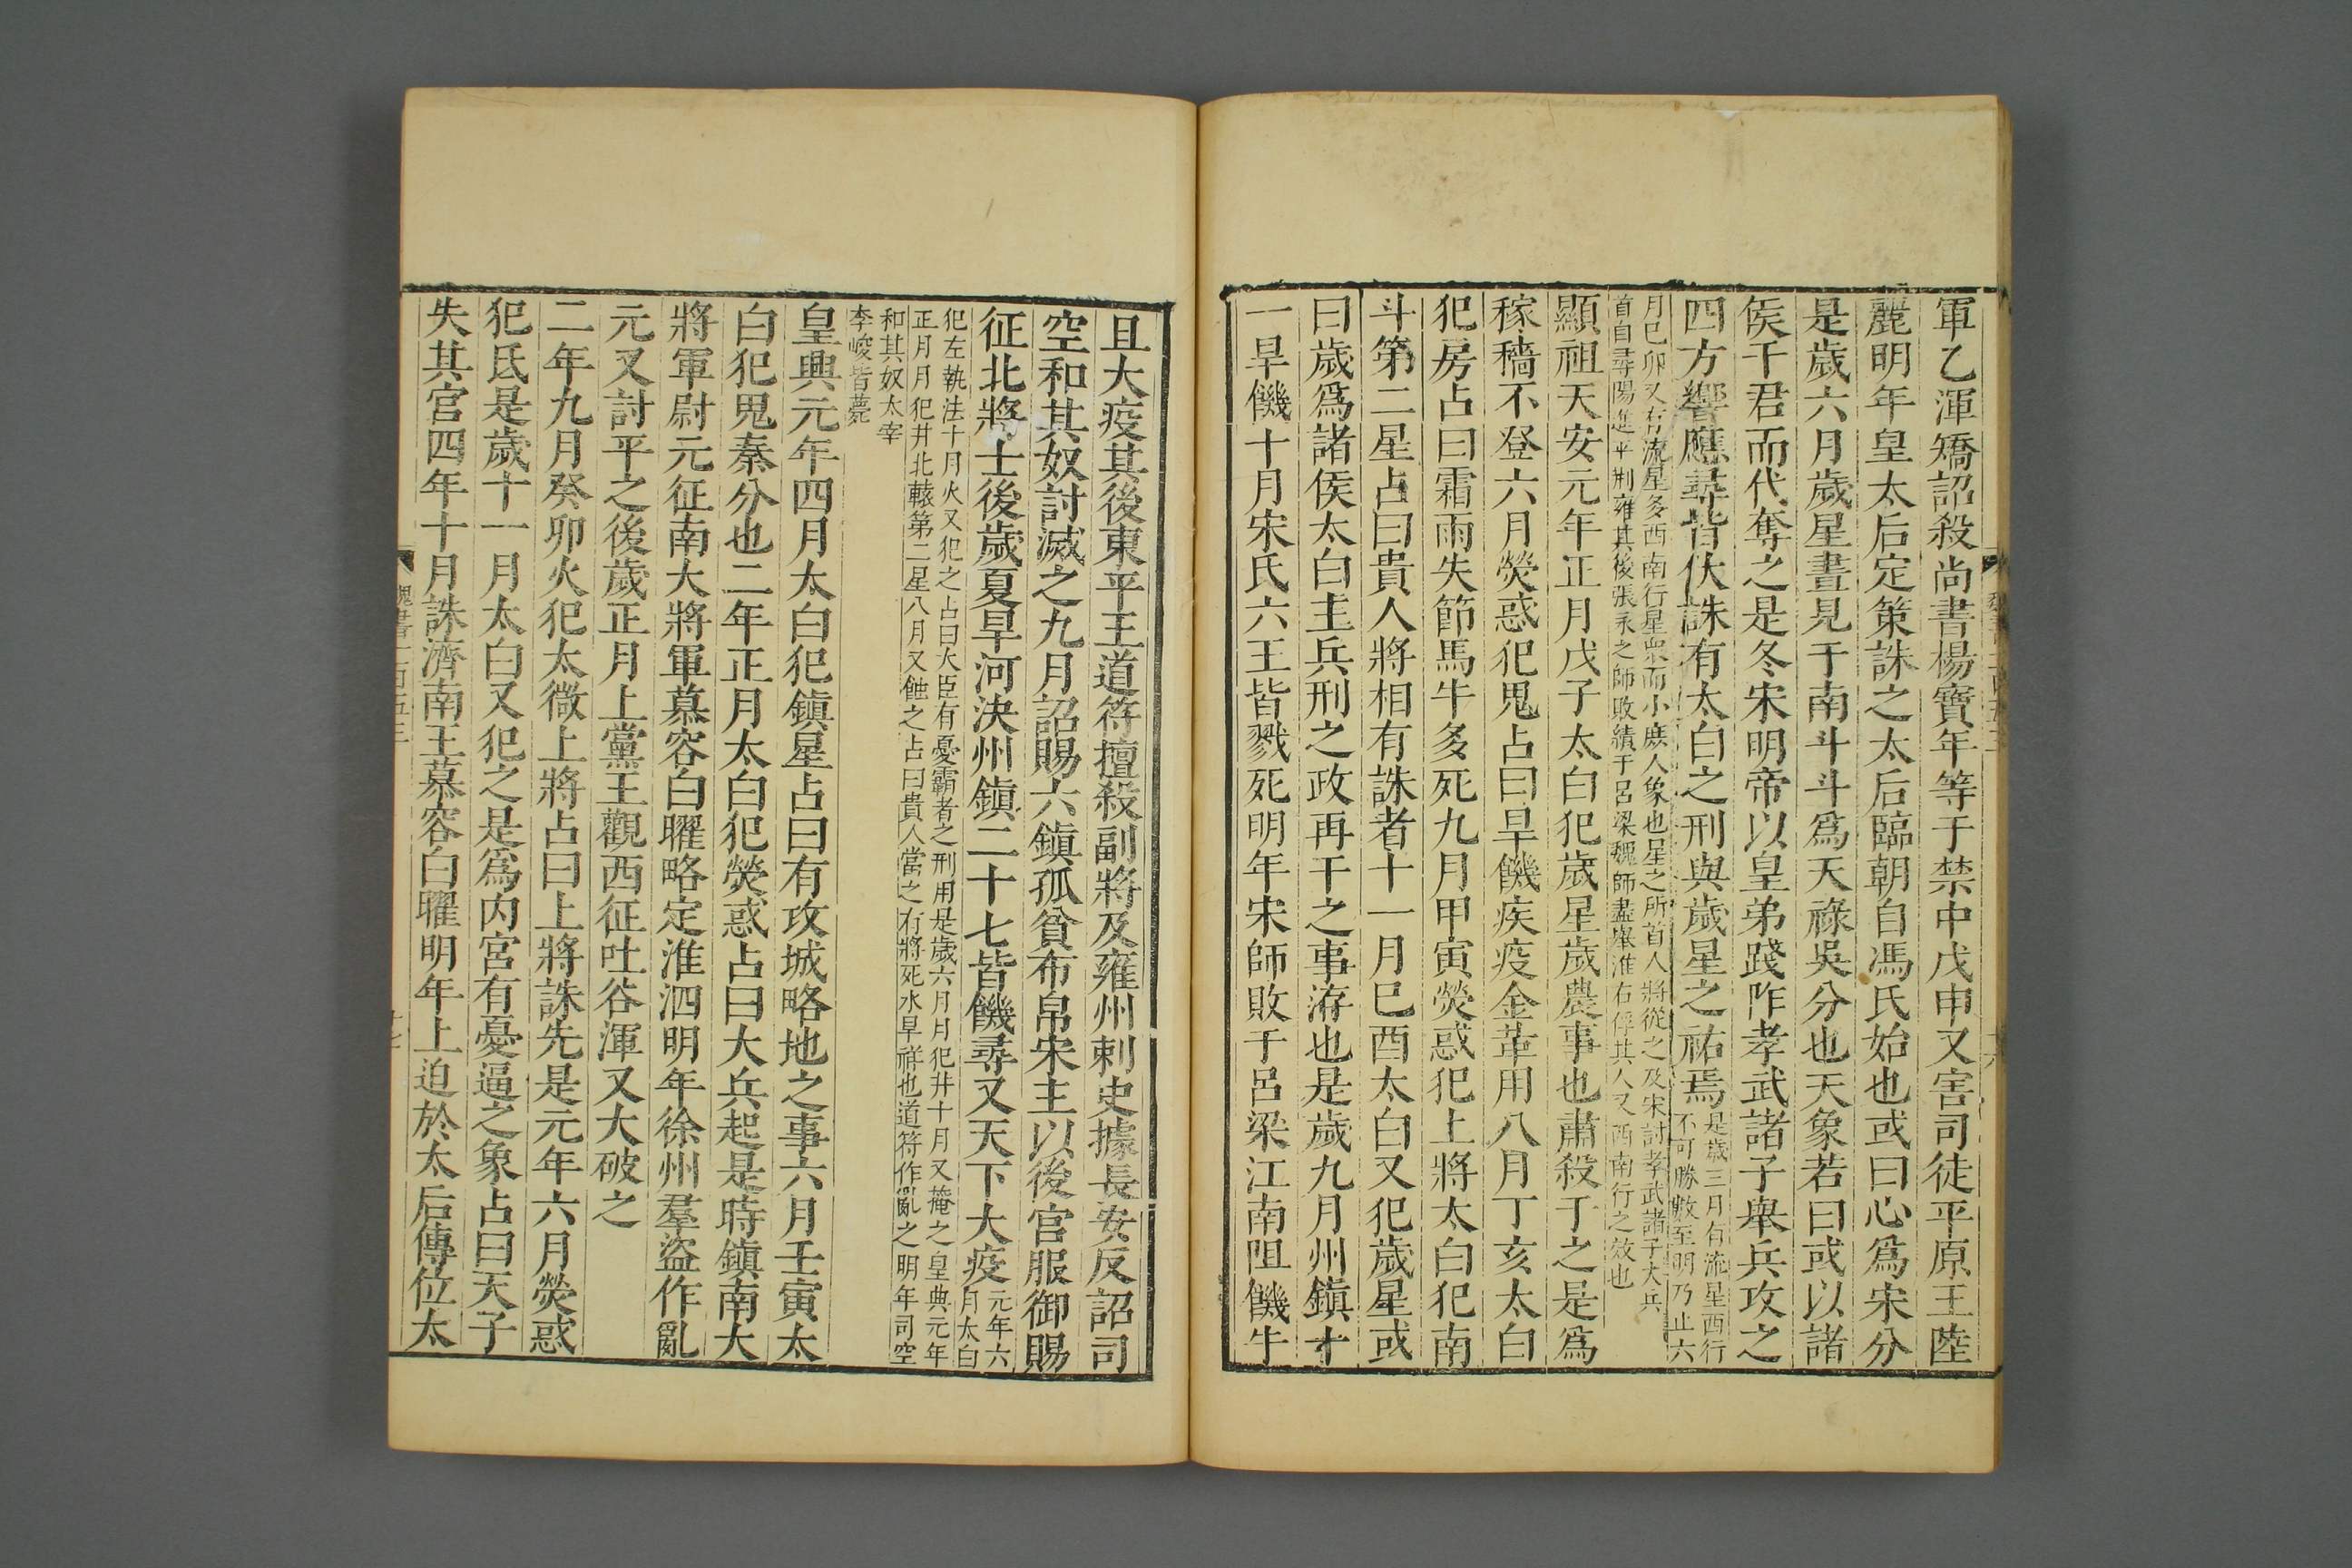 軍乙渾矯詔殺尚書楊寶年等于禁中戊申又害司徒平原王陸
麗明年皇太后定策誅之太后臨朝自馮氏始也或曰心爲宋分
是歲六月歲星晝見于南斗斗爲天祿吳分也天象若曰或以諸
侯干君而代奪之是冬宋明帝以皇弟踐阼孝武諸子舉兵攻之
四方響應尋皆伏誅有太白之刑與歲星之祐焉
是歲三月有流星西行
不可勝數至明乃止六
月巳卯又有流星多西南行星衆而小庶人象也星之所首人將從之及宋討孝武諸子大兵
首自尋陽進平荆雍其後張永之師敗績于呂梁魏師盡舉淮右俘其人又西南行之效也
顯祖天安元年正月戊子太白犯歲星歲農事也肅殺干之是爲
稼穡不登六月熒惑犯鬼占曰旱饑疾疫金革用八月丁亥太白
犯房占曰霜雨失節馬牛多死九月甲寅熒惑犯上將太白犯南
斗第二星占曰貴人將相有誅者十一月巳酉太白又犯歲星或
曰歲爲諸侯太白主兵刑之政再干之事洊也是歲九月州鎮十
一旱饑十月宋氏六王皆戮死明年宋師敗于呂梁江南阻饑牛
且大疫其後東平王道符擅殺副將及雍州刺史據長安反詔司
空和其奴討滅之九月詔賜六鎮孤貧布帛宋主以後宮服御賜
征北將士後歲夏旱河決州鎮二十七皆饑尋又天下大疫
元年六
月太白
犯左執法十月火又犯之占曰大臣有憂霸者之刑用是歲六月月犯井十月又掩之皇興元年
正月月犯井北轅第二星八月又蝕之占曰貴人當之有將死水旱祥也道符作亂之明年司空
和其奴太宰
李峻皆薨
皇興元年四月太白犯鎮星占曰有攻城略地之事六月壬寅太
白犯鬼秦分也二年正月太白犯熒惑占曰大兵起是時鎮南大
將軍尉元征南大將軍慕容白曜略定淮泗明年徐州羣盜作亂
元又討平之後歲正月上黨王觀西征吐谷渾又大破之
二年九月癸卯火犯太微上將占曰上將誅先是元年六月熒惑
犯氐是歲十一月太白又犯之是爲內宮有憂逼之象占曰天子
失其宮四年十月誅濟南王慕容白曜明年上迫於太后傳位太